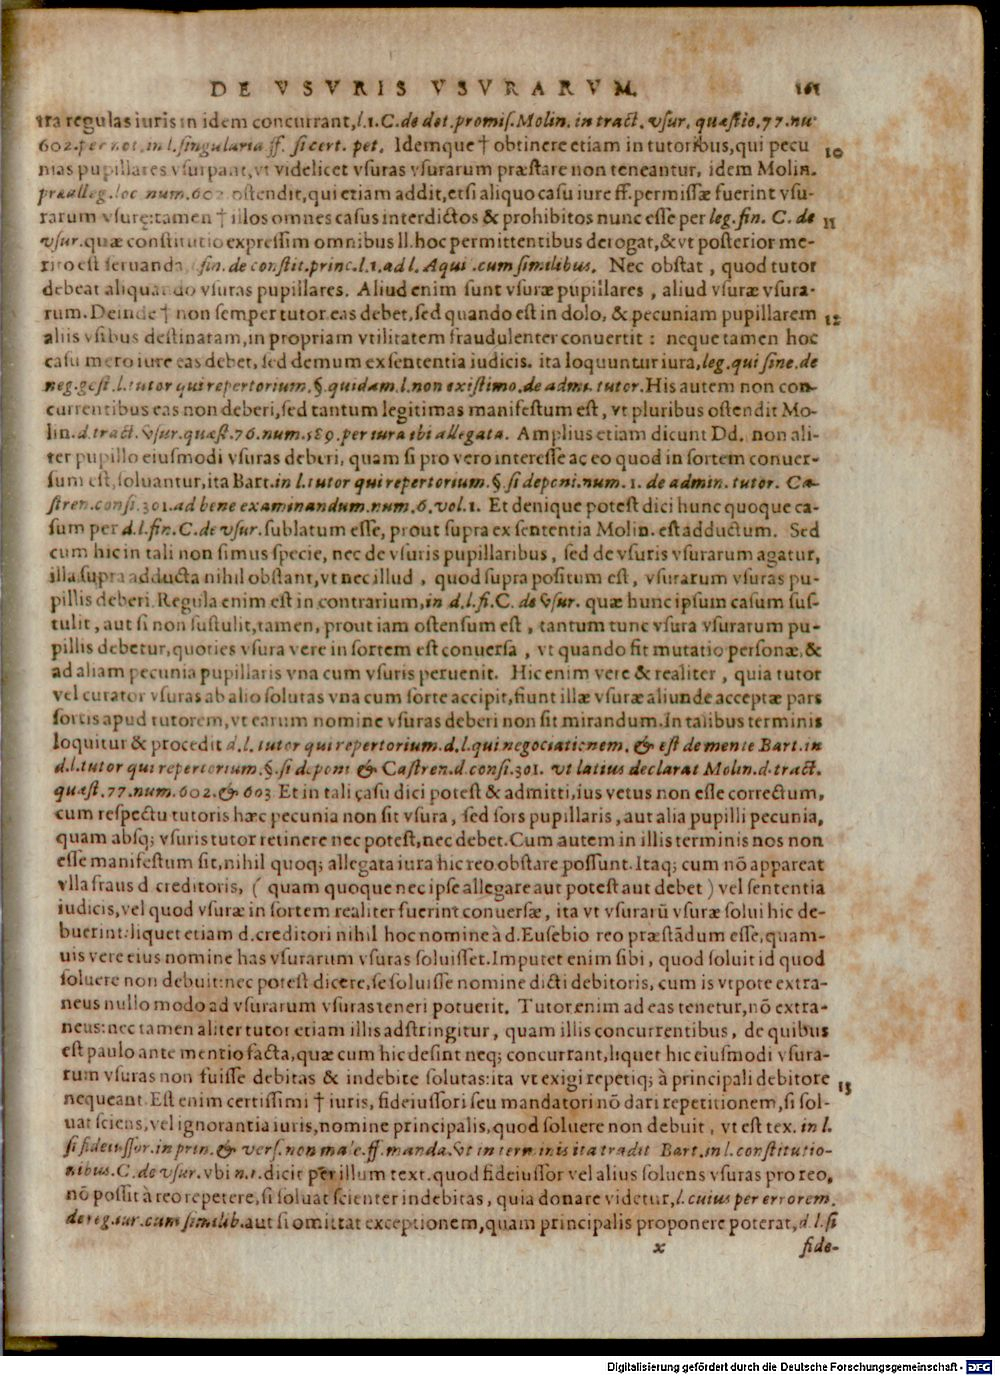 DE VSVRIS VSVRARVM. 161
tra regulas iuris in idem concurrant, l. 1. C. de det. promiſ. Molin. in tract. vſur. quæſtio. 77. nu
602. per not. in l. ſingularia ff. ſi cert. pet. Idemque † obtinere etiam in tutoribus, qui pecu 10
nias pupillares vſurpant, vt videlicet vſuras vſurarum præſtare non teneantur, idem Molin.
præalleg. loc num. 602 oſtendit, qui etiam addit, etſi aliquo caſu iure ff. permiſſæ fuerint vſu-
rarum vſurę: tamen † illos omnes caſus interdictos & prohibitos nunc eſſe per leg. fin. C. de 11
vſur. quæ conſtitutio expreſſim omnibus ll. hoc permittentibus derogat, & vt poſterior me-
rito eſt ſeruanda fin. de conſtit. princ. l. 1. ad l. Aqui. cum ſimilibus. Nec obſtat, quod tutor
debeat aliquando vſuras pupillares. Aliud enim ſunt vſuræ pupillares, aliud vſuræ vſura-
rum. Deinde † non ſemper tutor eas debet, ſed quando eſt in dolo, & pecuniam pupillarem 12
aliis vſibus deſtinatam, in propriam vtilitatem fraudulenter conuertit: neque tamen hoc
caſu mero iure eas debet, ſed demum ex ſententia iudicis. ita loquuntur iura, leg. qui ſine. de
neg. geſt. l. tutor qui repertorium. §. quidam. l. non exiſtimo. de admi. tutor. His autem non con-
currentibus eas non deberi, ſed tantum legitimas manifeſtum eſt, vt pluribus oſtendit Mo-
lin. d. tract. vſur. quæſt. 76. num. 589. per iura ibi allegata. Amplius etiam dicunt Dd. non ali-
ter pupillo eiuſmodi vſuras deberi, quam ſi pro vero intereſſe ac eo quod in ſortem conuer-
ſum eſt, ſoluantur, ita Bart. in l. tutor qui repertorium. §. ſi deponi. num. 1. de admin. tutor. Ca-
ſtren. conſi. 301. ad bene examinandum. num. 6. vol. 1. Et denique poteſt dici hunc quoque ca-
ſum per d. l. fin. C. de vſur. ſublatum eſſe, prout ſupra ex ſententia Molin. eſt adductum. Sed
cum hic in tali non ſimus ſpecie, nec de vſuris pupillaribus, ſed de vſuris vſurarum agatur,
illa ſupra adducta nihil obſtant, vt nec illud, quod ſupra poſitum eſt, vſurarum vſuras pu-
pillis deberi. Regula enim eſt in contrarium, in d. l. fi. C. de vſur. quæ hunc ipſum caſum ſuſ-
tulit, aut ſi non ſuſtulit, tamen, prout iam oſtenſum eſt, tantum tunc vſura vſurarum pu-
pillis debetur, quoties vſura vere in ſortem eſt conuerſa, vt quando fit mutatio perſonæ, &
ad aliam pecunia pupillaris vna cum vſuris peruenit. Hic enim vere & realiter, quia tutor
vel curator vſuras ab alio ſolutas vna cum ſorte accipit, fiunt illæ vſuræ aliunde acceptæ pars
ſortis apud tutorem, vt earum nomine vſuras deberi non ſit mirandum. In talibus terminis
loquitur & procedit d. l. tutor qui repertorium. d. l. qui negociationem. & eſt de mente Bart. in
d. l. tutor qui repertorium. §. ſi deponi & Caſtren. d. conſi. 301. vt latius declarat Molin. d. tract.
quæſt. 77. num. 602. & 603 Et in tali caſu dici poteſt & admitti, ius vetus non eſſe correctum,
cum reſpectu tutoris hæc pecunia non ſit vſura, ſed ſors pupillaris, aut alia pupilli pecunia,
quam abſq; vſuris tutor retinere nec poteſt, nec debet. Cum autem in illis terminis nos non
eſſe manifeſtum ſit, nihil quoq; allegata iura hic reo obſtare poſſunt. Itaq; cum nō appareat
vlla fraus d creditoris, ( quam quoque nec ipſe allegare aut poteſt aut debet ) vel ſententia
iudicis, vel quod vſuræ in ſortem realiter fuerint conuerſæ, ita vt vſurarū vſuræ ſolui hic de-
buerint: liquet etiam d. creditori nihil hoc nomine à d. Euſebio reo præſtādum eſſe, quam-
uis vere eius nomine has vſurarum vſuras ſoluiſſet. Imputet enim ſibi, quod ſoluit id quod
ſoluere non debuit: nec poteſt dicere, ſe ſoluiſſe nomine dicti debitoris, cum is vtpote extra-
neus nullo modo ad vſurarum vſuras teneri potuerit. Tutor enim ad eas tenetur, nō extra-
neus: nec tamen aliter tutor etiam illis adſtringitur, quam illis concurrentibus, de quibus
eſt paulo ante mentio facta, quæ cum hic deſint neq; concurrant, liquet hic eiuſmodi vſura-
rum vſuras non fuiſſe debitas & indebite ſolutas: ita vt exigi repetiq; à principali debitore 13
nequeant. Eſt enim certiſſimi † iuris, fideiuſſori ſeu mandatori nō dari repetitionem, ſi ſol-
uat ſciens, vel ignorantia iuris, nomine principalis, quod ſoluere non debuit, vt eſt tex. in l.
ſi fideiuſſor. in prin. & verſ. non male. ff. manda. vt in terminis ita tradit Bart. in l. conſtitutio-
nibus. C. de vſur. vbi n. 1. dicit per illum text. quod fideiuſſor vel alius ſoluens vſuras pro reo,
nō poſſit à reo repetere, ſi ſoluat ſcienter indebitas, quia donare videtur, l. cuius per errorem.
de reg. iur. cum ſimilib. aut ſi omittat exceptionem, quam principalis proponere poterat, d. l. ſi
x fide-
Digitalisierung gefördert durch die Deutsche Forschungsgemeinschaft - DFG